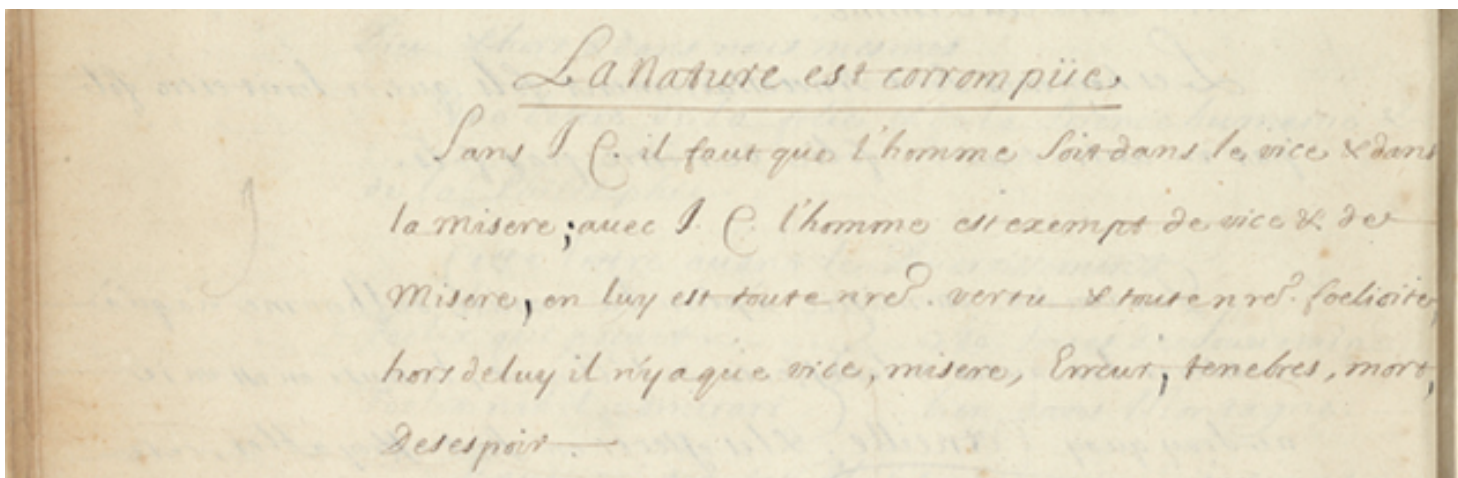 La Nature est corrompüe
Sans J. C. il faut que l'homme soit dans le vice & dans
la misere; avec J. C. l'homme est exempt de vice & de
Misere, en luy est toute nre. vertu & toute nre. foelicite,
hors de luy il n'y a que vice, misere, Erreur, tenebres, mort,
Desespoir.